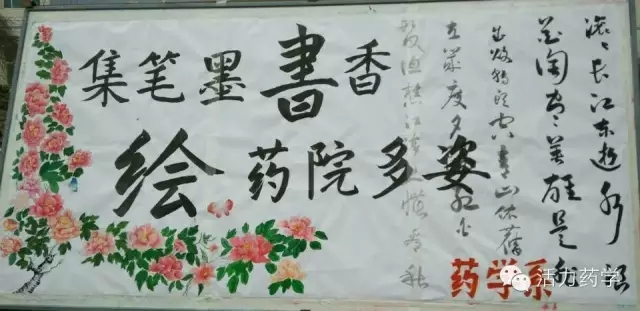 集笔墨書香
绘药院多姿
滚滚长江东逝水浪
花淘尽英雄是非
成败转头空青山依旧
在几度夕阳红白
发渔樵江渚上惯看秋
药学系
活力药学